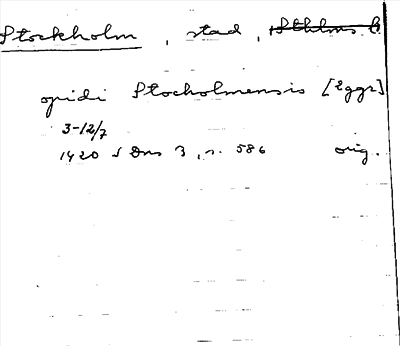 Stockholm, stad, Sthlms l.
opidi Stocholmensis [Eggr]
3-12/7
1420 S Dns 3, n. 586 orig.